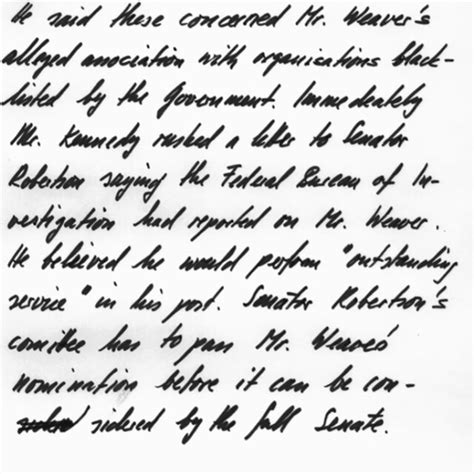 He said these concerned Mr. Weaver's
alleged association with organisations black-
listed by the Government. Immedeately
Mr. Kennedy rushed a letter to Senator
Robertson saying the Federal Bureau of In-
vestigation had reported on Mr. Weaver.
He believed he would perform "outstanding
service" in his post. Senator Robertson's
comittee has to pass Mr. Weaver's
nomination before it can be con-
sidered by the full Senate.